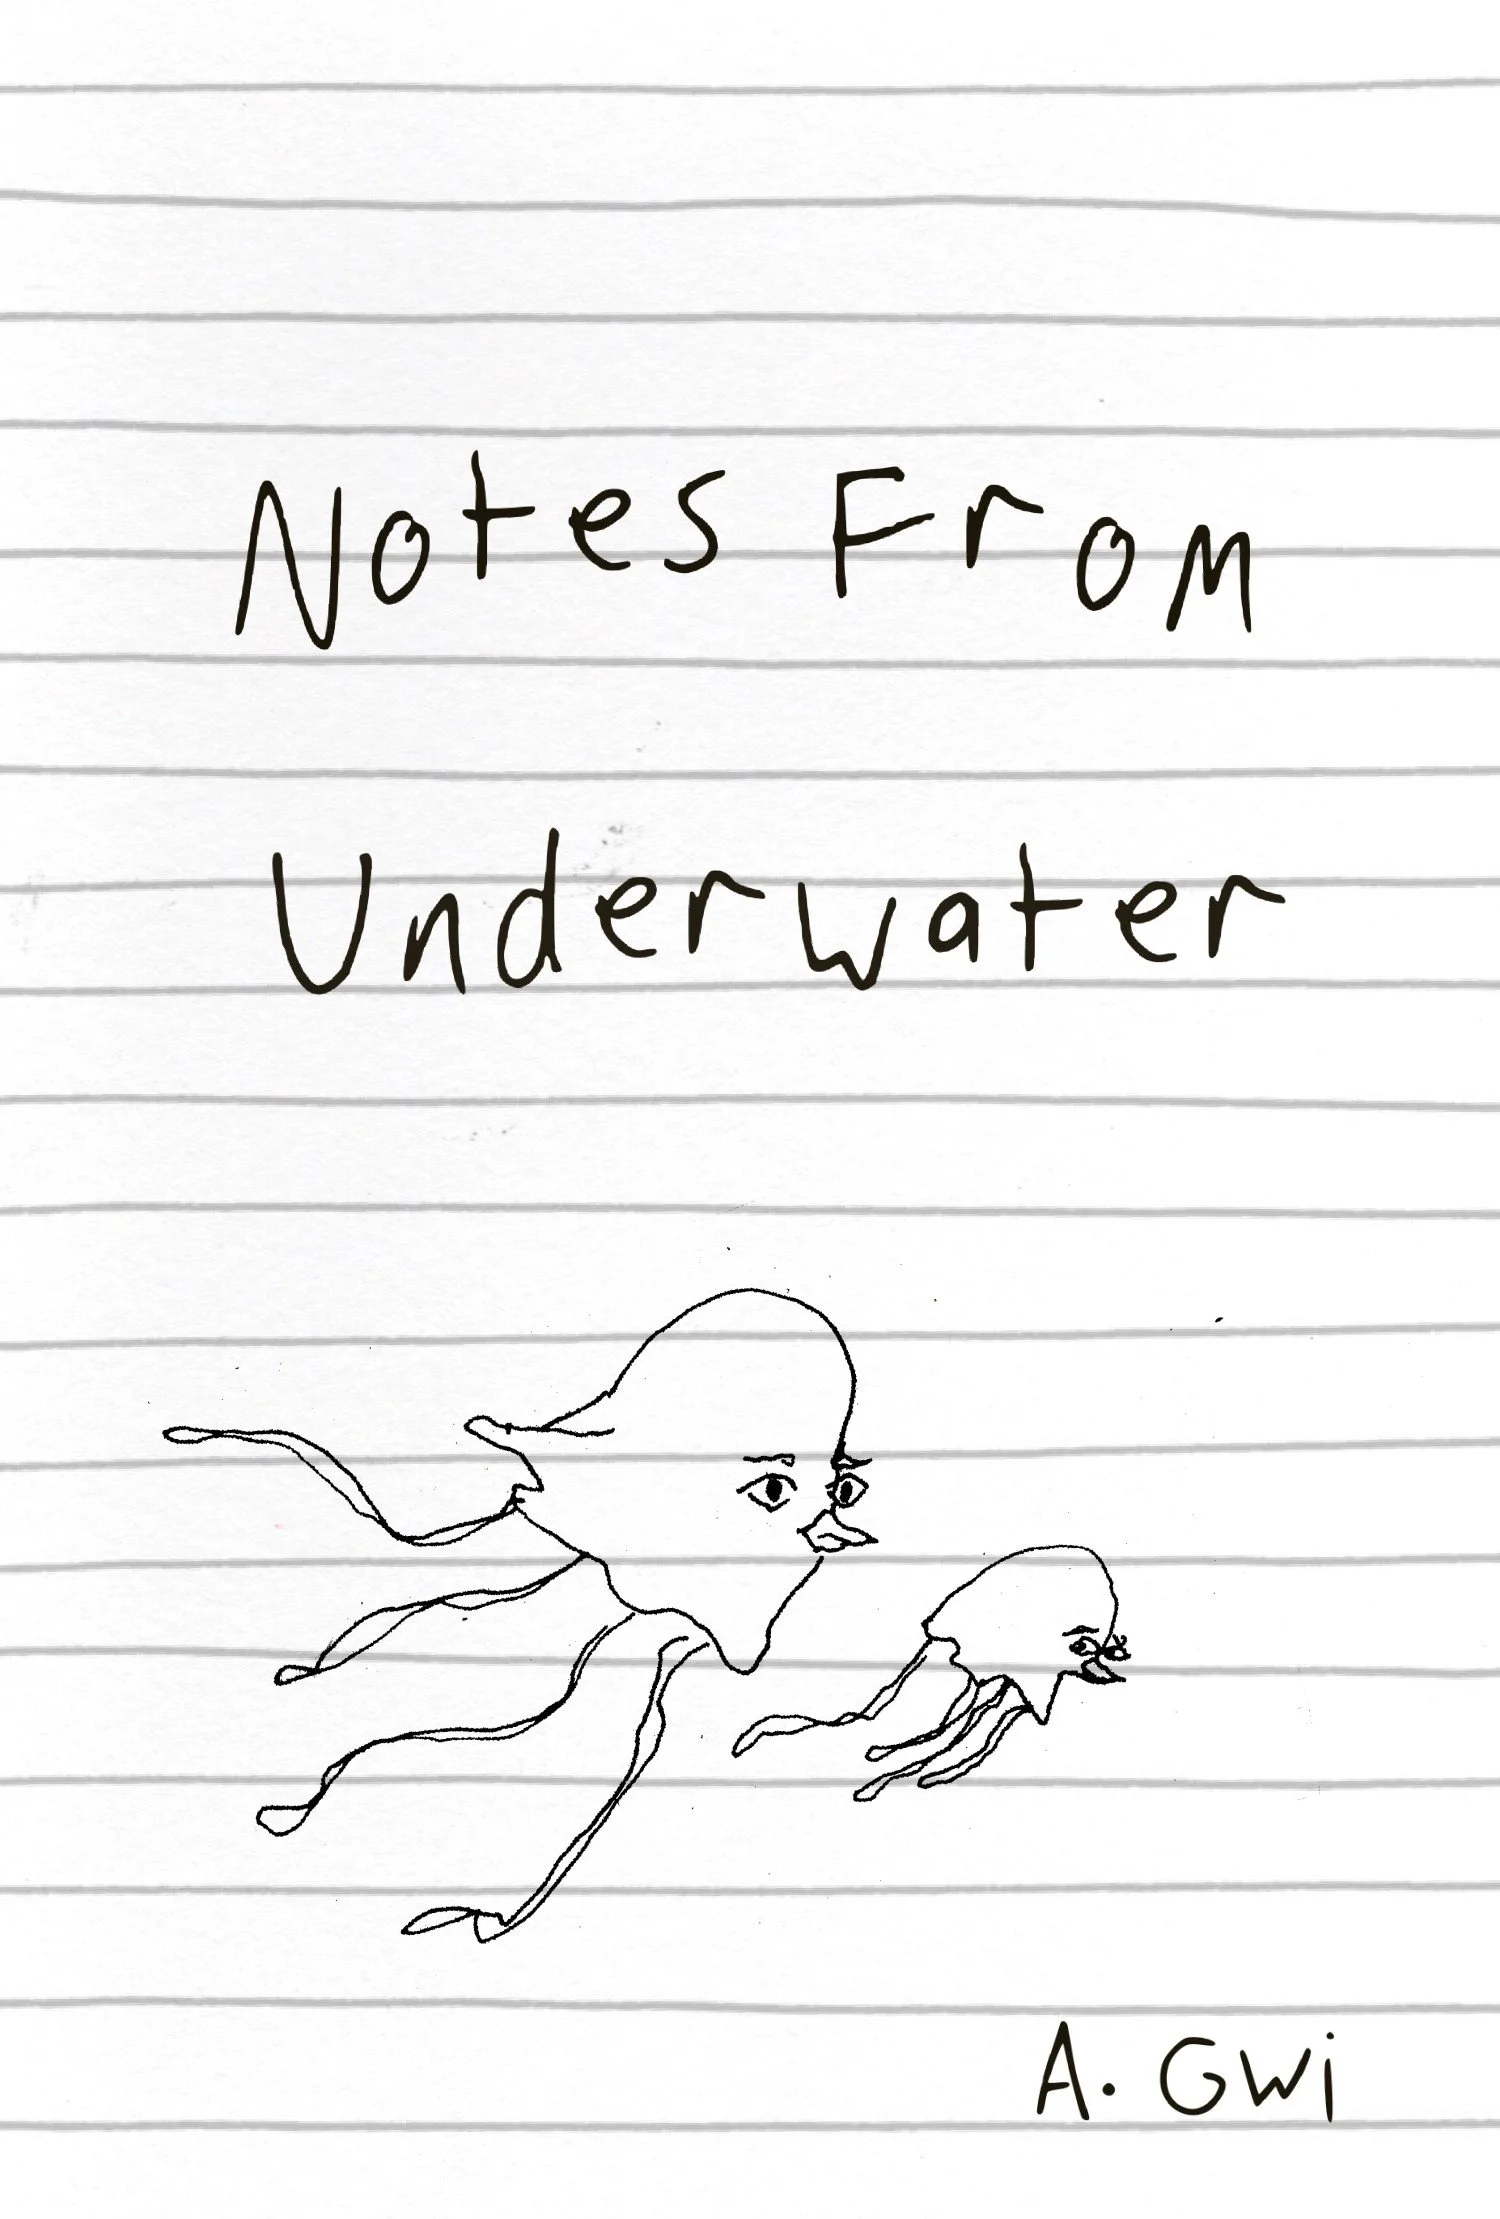 Notes From
Underwater
A. Gwi